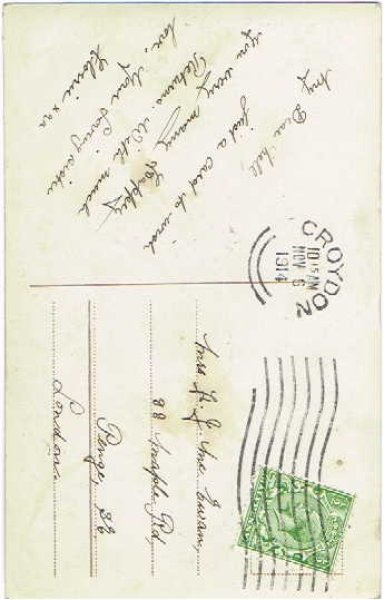 My
Dear Nell
Just a card to wish
you very many Happy
Returns. With much
love. Your loving
Florrie xxx
CROYDON
10.15 AM
NOV 6
1914
Mrs
88 Maple Rd,
Penge, SE
London.